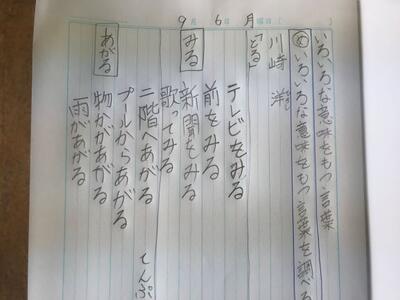 9月6日月曜日(
いろいろな意味をもつ言葉
めいろいろな意味をもつ言葉を調べる
川崎 洋
「とる」
テレビをみる
前をみる
みる 新聞をみる
歌ってみる
二階へあがる
プールからあがる
あがる 物かがあがる
雨があがる
てんぷ